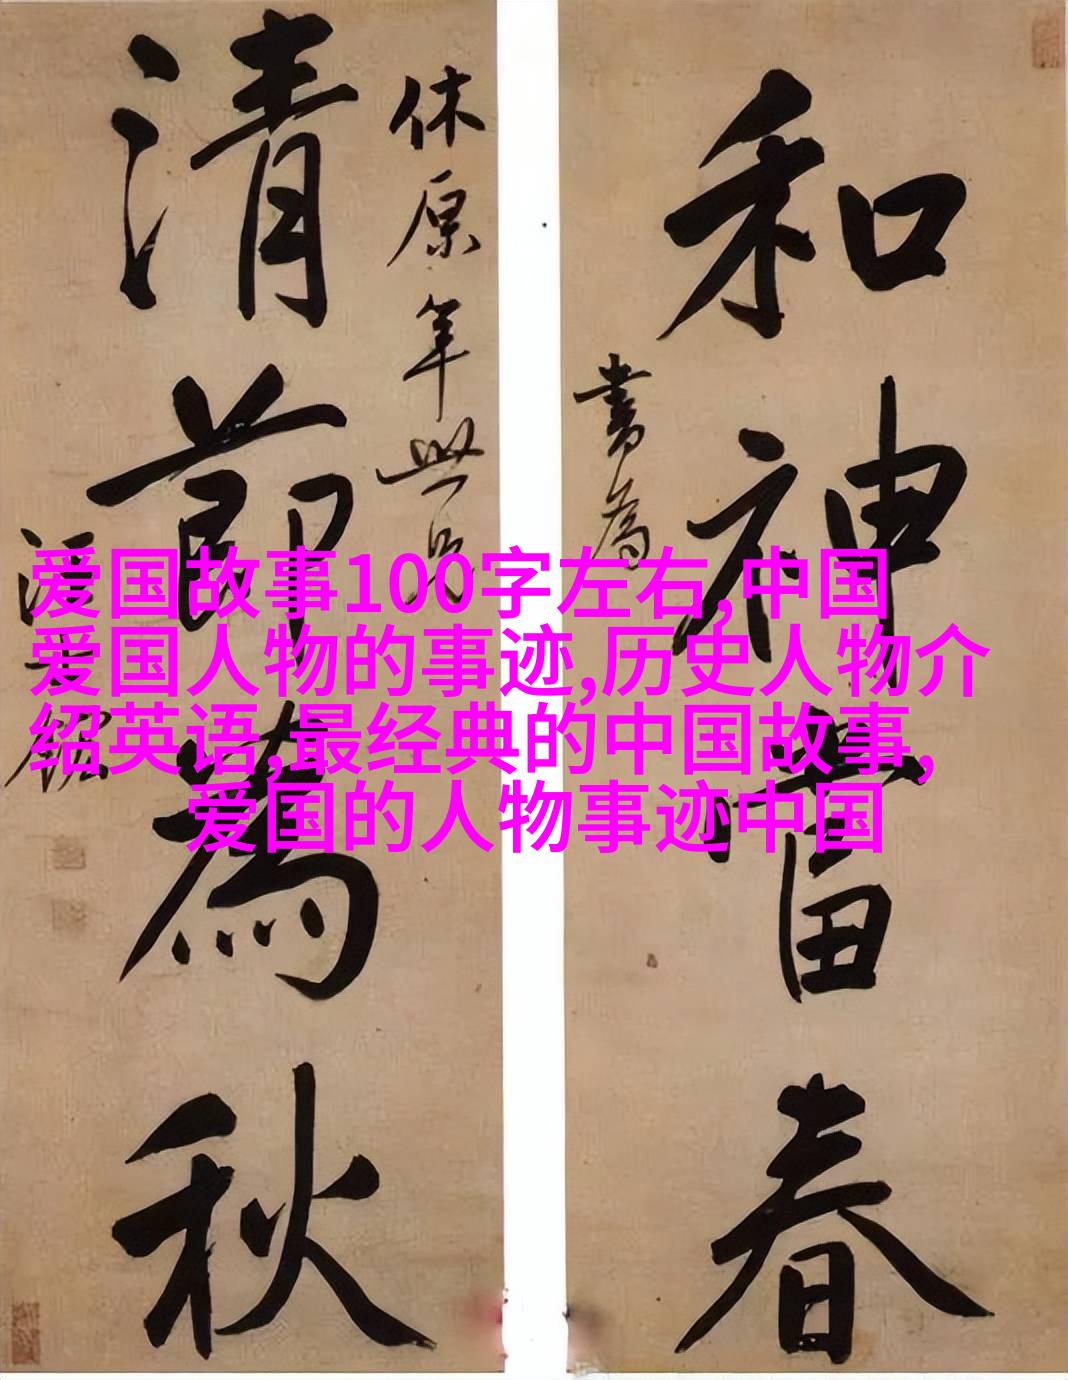 和神當春
書為
休原年世兄
清節為秋
汪士鋐
爱国故事100字左右,中国
爱国人物的事迹,历史人物介
绍英语,最经典的中国故事,
爱国的人物事迹中国